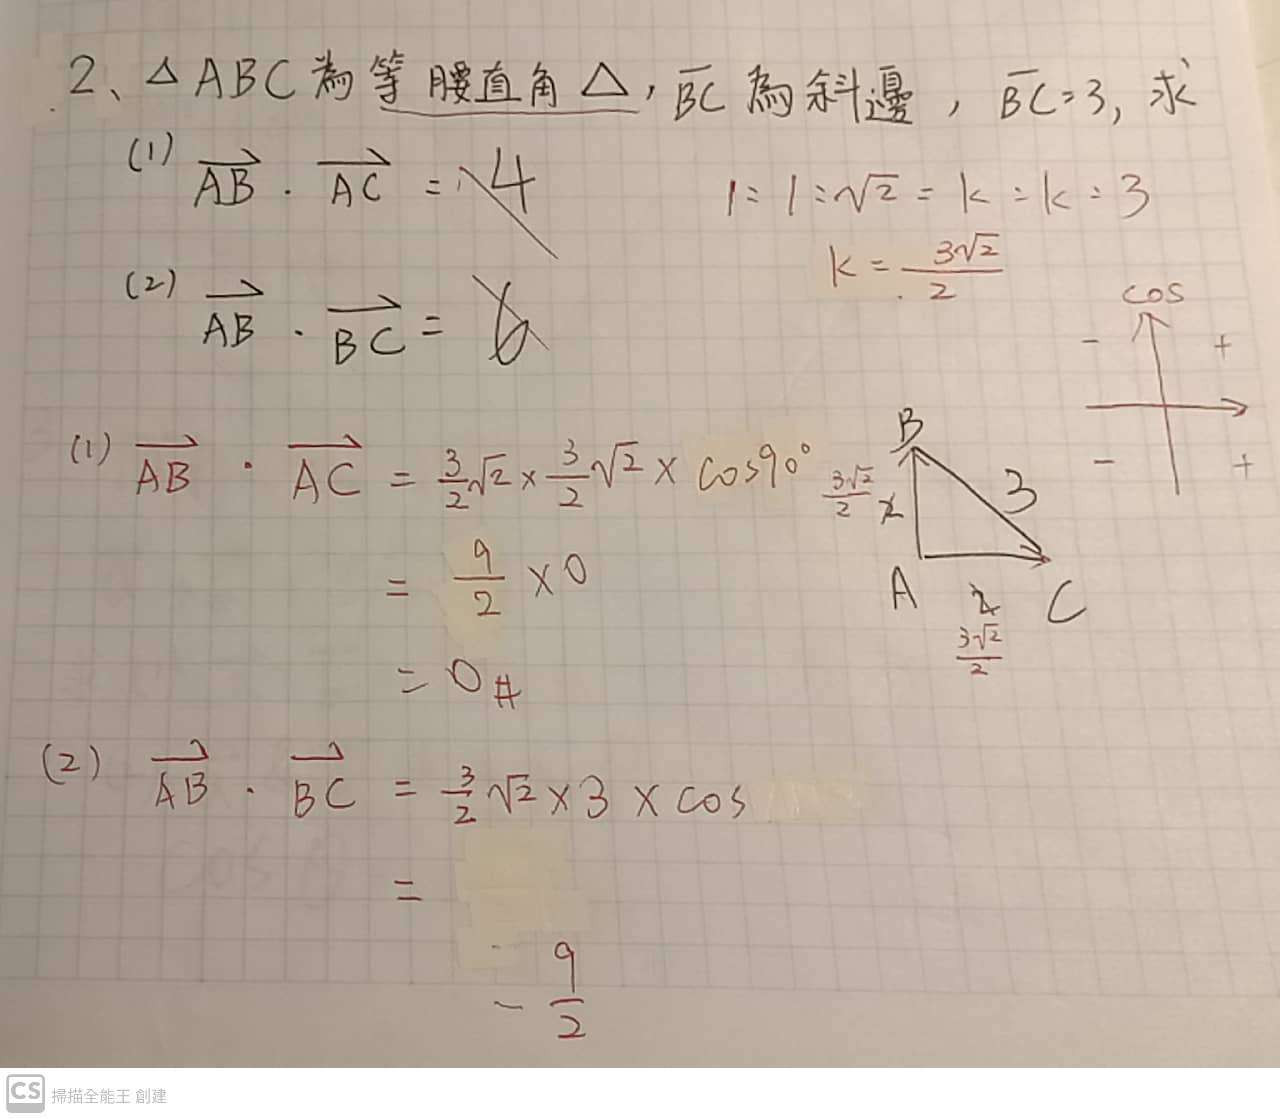 2、△ABC為等腰直角△，BC為斜邊，BC=3，求
(1) AB · AC = 4
1:1:√2 = k:k:3
k = 3√2/2
(2) AB · BC = 6
cos
- +
- +
(1) AB · AC = 3/2√2 × 3/2√2 × cos90°
= 9/2 × 0
= 0#
B
3√2/2
2
3
A
2
C
3√2/2
(2) AB · BC = 3/2√2 × 3 × cos
=
- 9/2
CS 掃描全能王 創建